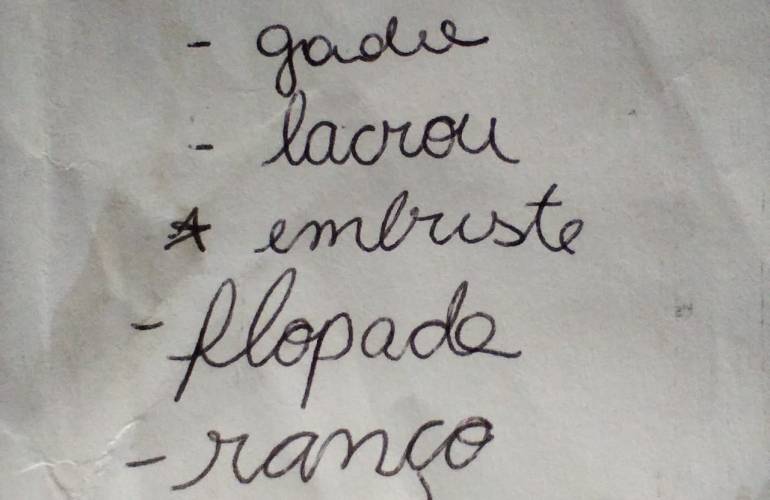 - gadu
- lacrou
* embuste
- flopada
- ranço